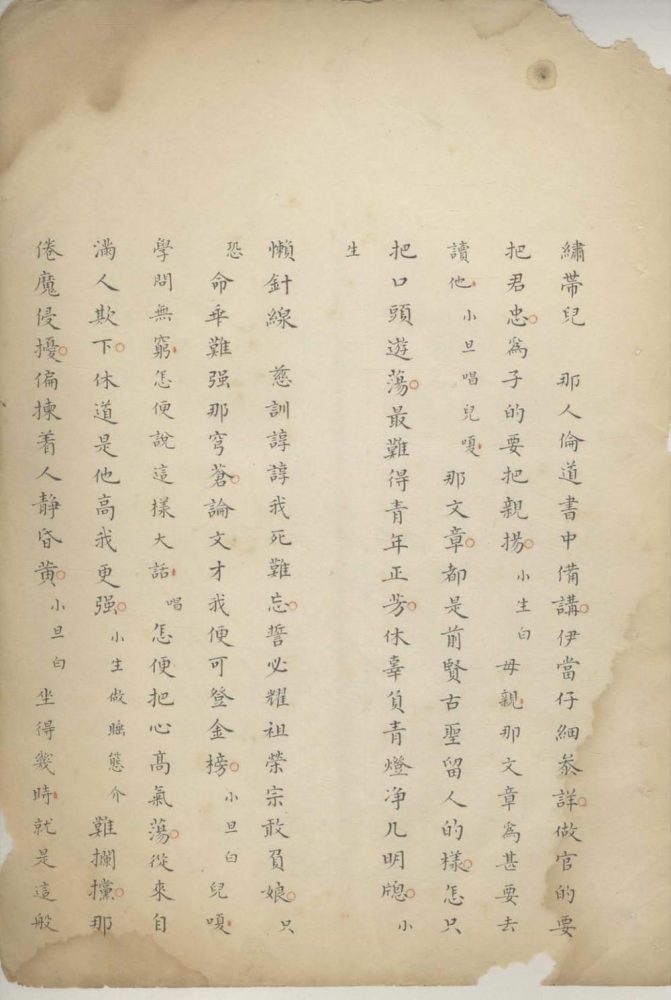 繡帶兒　那人倫道書中備講。伊當仔細叅詳。做官的要
把君忠。為子的要把親揚。小生白　母親、那文章為甚要去
讀他、小旦唱　兒嗄、那文章。都是前賢古聖留人的樣。怎只
把口頭遊蕩。最難得青年正芳。休辜負青燈淨几明牕。小
生
懶針線　慈訓諄諄我死難忘。誓必耀祖榮宗敢負娘。只
恐命乖難强那穹蒼。論文才我便可登金榜。小旦白　兒嗄、
學問無窮、怎便說這樣大話、唱　怎便把心高氣蕩。從來自
滿人欺下。休道是他高我更强。小生做睡態介　難攔攩。那
倦魔侵擾。偏揀着人靜昏黃。小旦白　坐得幾時、就是這般